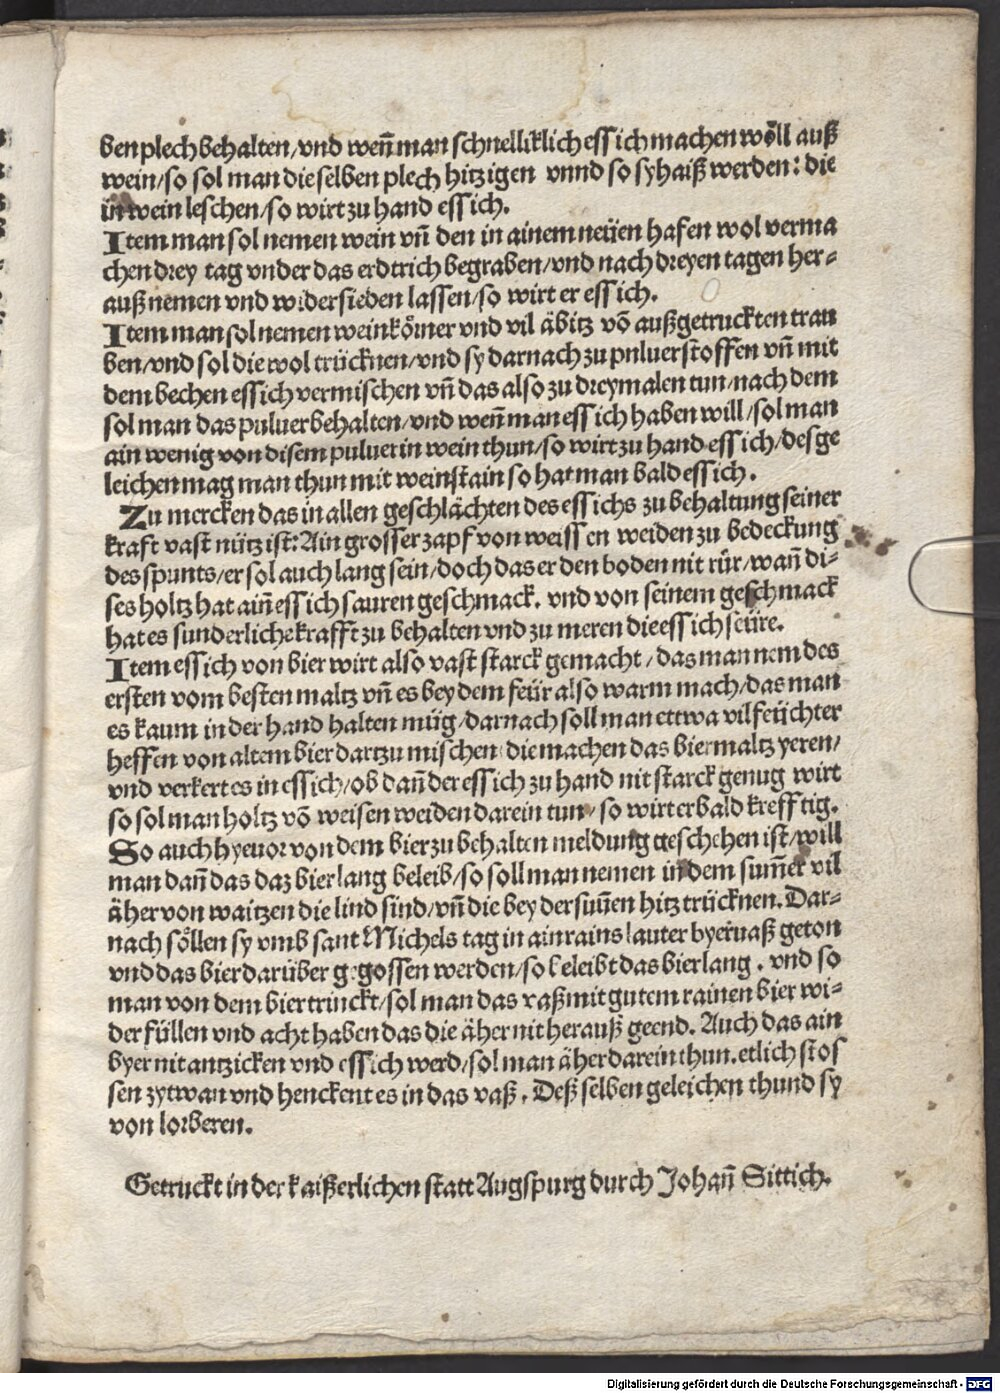 ben plech behalten/vnd weñ man schnelliklich essich machen wöll auß
wein/so sol man die selben plech hitzigen vnnd so sy haiß werden: die
in wein leschen/so wirt zu hand essich.
Item man sol nemen wein vñ den in ainem neüen hafen wol verma
chen drey tag vnder das erdtrich begraben/vnd nach dreyen tagen her=
auß nemen vnd widersieden lassen/so wirt er essich.
Item man sol nemen weinkörner vnd vil äbitz vō außgetruckten trau
ben/vnd sol die wol trücknen/vnd sy darnach zu puluer stoffen vñ mit
dem bechen essich vermischen vñ das also zu dreymalen tun/nach dem
sol man das puluer behalten/vnd weñ man essich haben will/sol man
ain wenig von disem puluer in wein thun/so wirt zu hand essich/desge
leichen mag man thun mit weinstain so hat man bald essich.
Zu mercken das in allen geschlächten des essichs zu behaltung seiner
kraft vast nütz ist: Ain grosser zapf von weissen weiden zu bedeckung
des spunts/er sol auch lang sein/doch das er den boden nit rür/wañ di=
ses holtz hat aiñ essich sauren geschmack. vnd von seinem geschmack
hat es sunderliche krafft zu behalten vnd zu meren die essich seüre.
Item essich von bier wirt also vast starck gemacht/das man nem des
ersten vom besten maltz vñ es bey dem feür also warm mach/das man
es kaum in der hand halten müg/darnach soll man ettwa vil feüchter
heffen von altem bier dartzu mischen die machen das biermaltz yeren/
vnd verkert es in essich/ob dañ der essich zu hand nit starck genug wirt
so sol man holtz vō weisen weiden darein tun/so wirt er bald krefftig.
So auch hyeuor von dem bier zu behalten meldung geschehen ist/will
man dañ das daz bier lang beleib/so soll man nemen in dem sum̄er vil
äher von waitzen die lind sind/vñ die bey der suñen hitz trücknen. Dar=
nach söllen sy vmb sant Michels tag in ain rains lauter byeruaß geton
vnd das bier darüber gegossen werden/so beleibt das bier lang. vnd so
man von dem bier trinckt/sol man das vaß mit gutem rainen bier wi=
der füllen vnd acht haben das die äher nit herauß geend. Auch das ain
byer nit antzicken vnd essich werd/sol man äher darein thun. etlich stos
sen zytwan vnd henckent es in das vaß. Deß selben geleichen thund sy
von lorberen.
Getruckt in der kaißerlichen statt Augspurg durch Johañ Sittich.
Digitalisierung gefördert durch die Deutsche Forschungsgemeinschaft - DFG